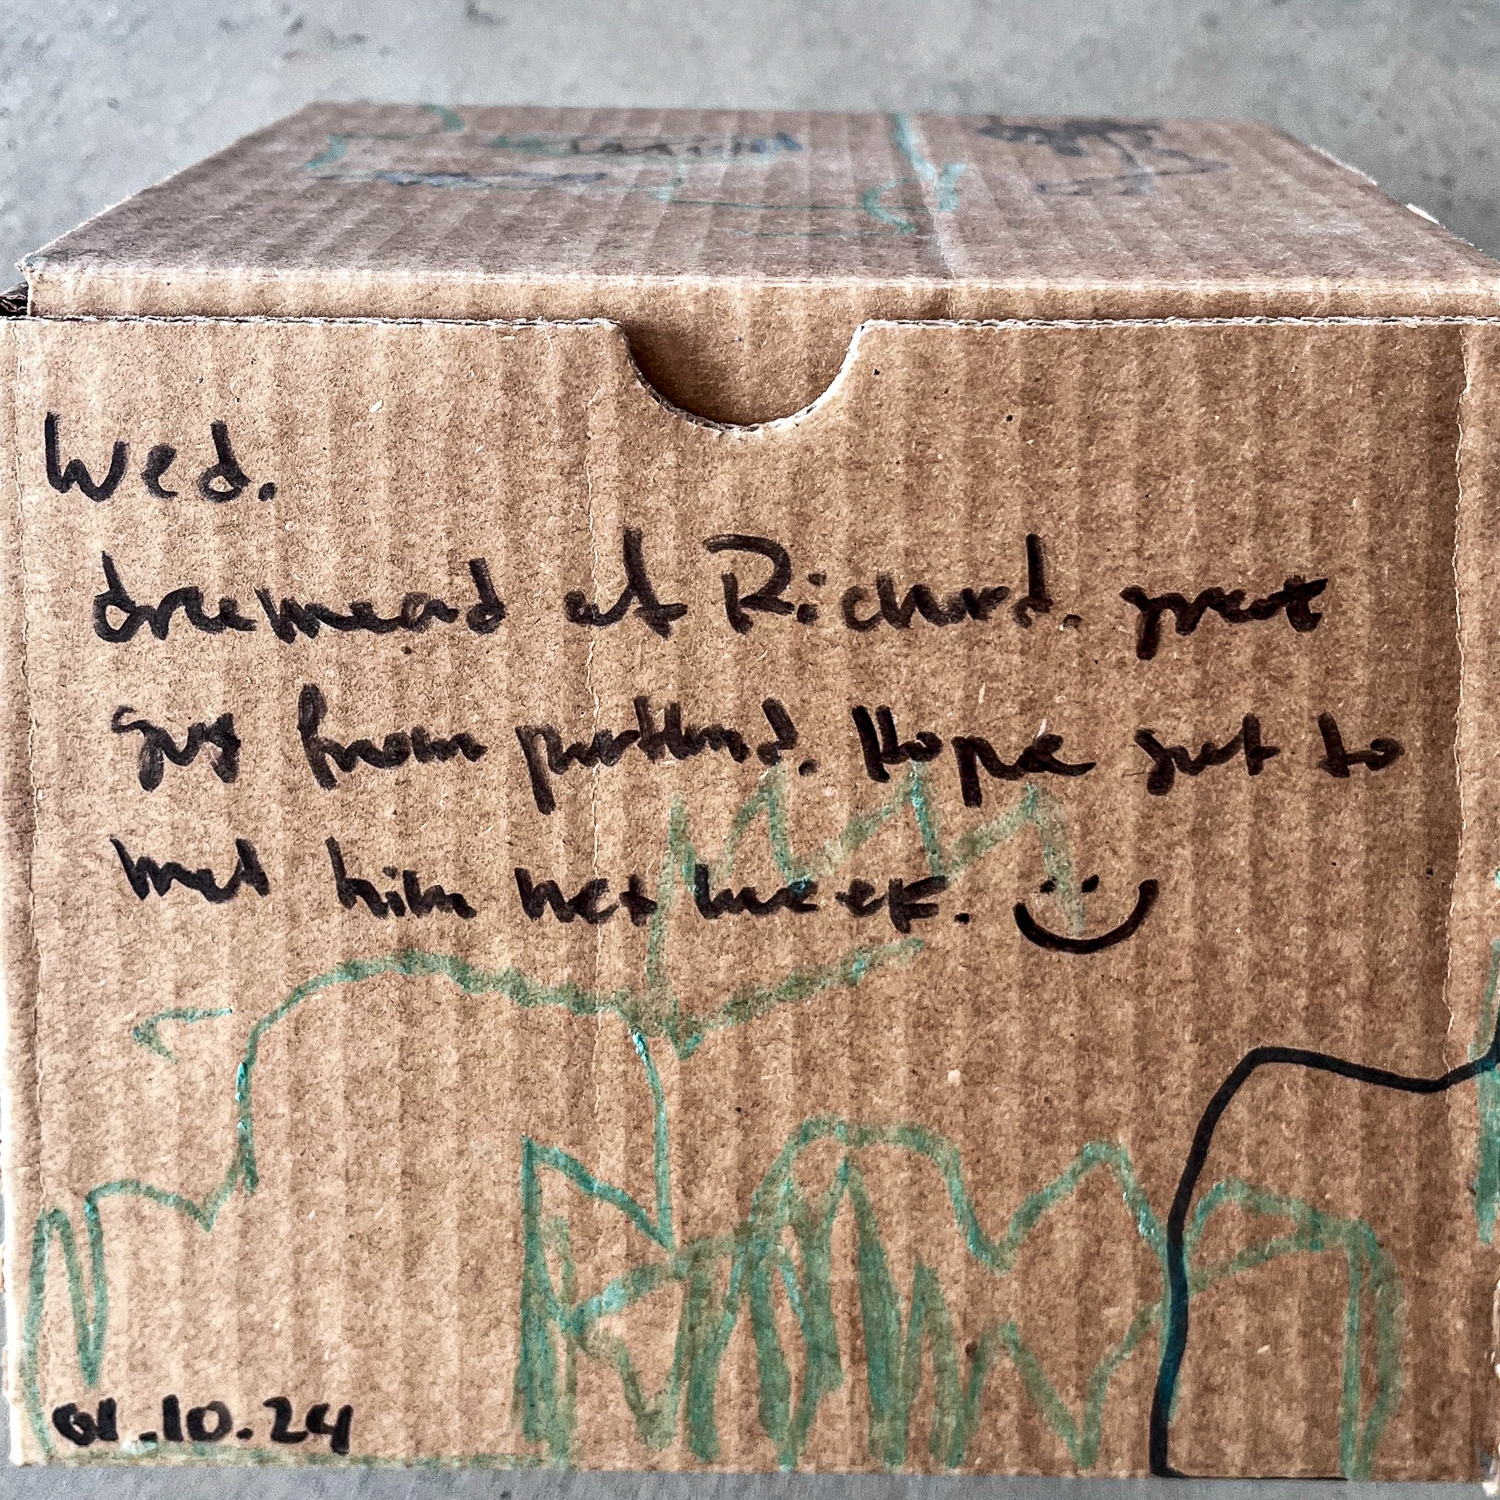 Wed.
dreamead of Richard. great
guy from portland. Hope get to
met him net week.
01.10.24